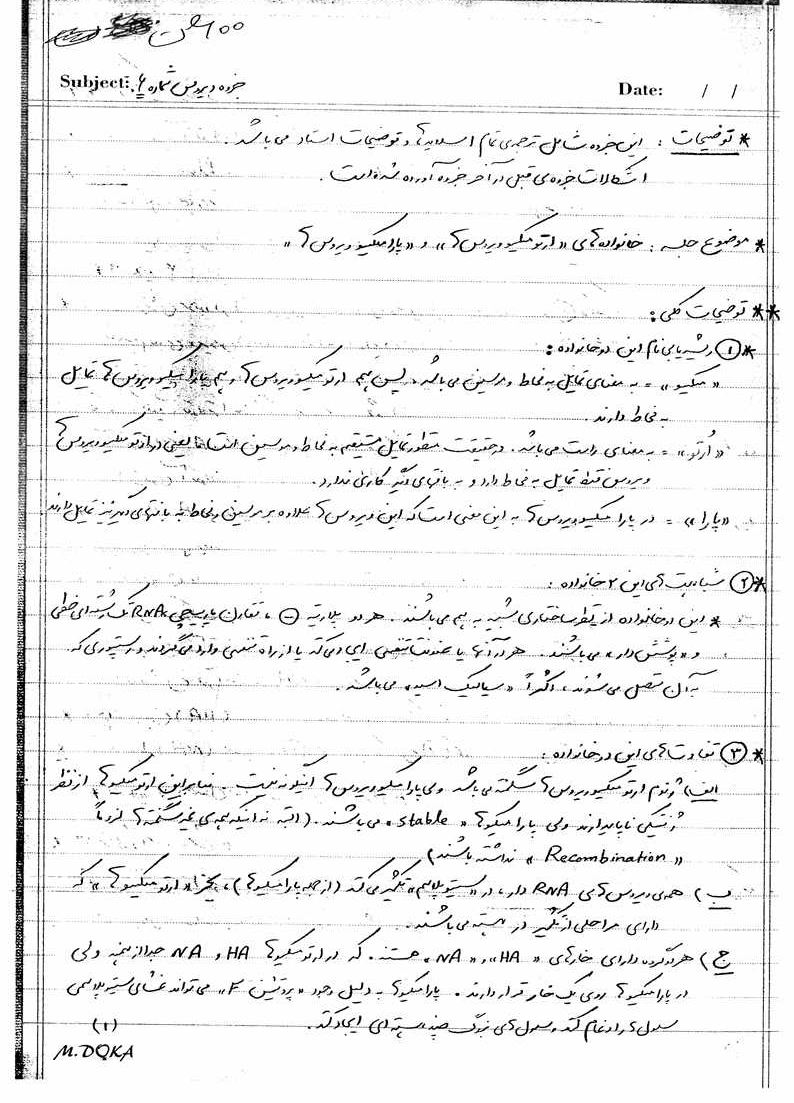 ۱۰۰
Subject: جزوه ویروس شماره ۶ Date: / /
* توضیحات : این جزوه شامل ترجمه‌ی تمام اسلایدها و توضیحات استاد می باشد.
اشکالات جزوه‌ی قبل در آخر جزوه آورده شده است.
* موضوع جلسه : خانواده‌های «ارتومیکسوویروس‌ها» و «پارامیکسوویروس‌ها»
** توضیحات کلی :
* ① ریشه‌یابی نام این دو خانواده :
«میکسو» = به معنای تمایل به مخاط و موسین می باشد. پس هم ارتومیکسوویروس‌ها و هم پارامیکسوویروس‌ها تمایل
به مخاط دارند.
«اُرتو» = به معنای راست می باشد. در حقیقت منظور تمایل مستقیم به مخاط و موسین است. یعنی در ارتومیکسوویروس‌ها
ویروس فقط تمایل به مخاط دارد و به بافتهای دیگر کاری ندارد.
«پارا» = در پارامیکسوویروس‌ها به این معنی است که این ویروس‌ها علاوه بر موسین و مخاط به بافتهای دیگر نیز تمایل دارند
* ② شباهت‌های این ۲ خانواده :
* این دو خانواده از نظر ساختاری شبیه به هم می باشند. هر دو پلاریته ⊖ ، تقارن مارپیچی، RNA تک رشته‌ای خطی
و «پوشش دار» می باشند. هر دو آنها یا عفونت تنفسی ایجاد می‌کند یا از راه تنفسی وارد می‌گردند و رسپتوری که
به آن متصل می شوند، اکثراً «سیالیک اسید» می باشد.
* ③ تفاوت‌های این دو خانواده :
الف) ژنوم ارتومیکسوویروس‌ها سگمنته می باشد ولی پارامیکسوویروس‌ها اینگونه نیست. بنابراین ارتومیکسوها از نظر
ژنتیکی ناپایدارند ولی پارامیکسوها «stable» می باشند. (البته نه اینکه همه‌ی غیر سگمنته‌ها لزوماً
«Recombination» نداشته باشند)
ب) همه‌ی ویروس‌های RNA دار، در «سیتوپلاسم» تکثیر می‌کند (از جمله پارامیکسوها)، بجز «ارتومیکسوها» که
دارای مراحلی از تکثیر در هسته می باشند.
ج) هر دو گروه دارای خارهای «HA» و «NA» هستند. که در ارتومیکسوها HA و NA جدا از همند ولی
در پارامیکسوها روی یک خار قرار دارند. پارامیکسوها به دلیل وجود «پروتئین F» می تواند غشای سیتوپلاسمی
سلول‌ها را ادغام کند و سلول‌های بزرگ چند هسته‌ای ایجاد کند.
(۱)
M.DOKA